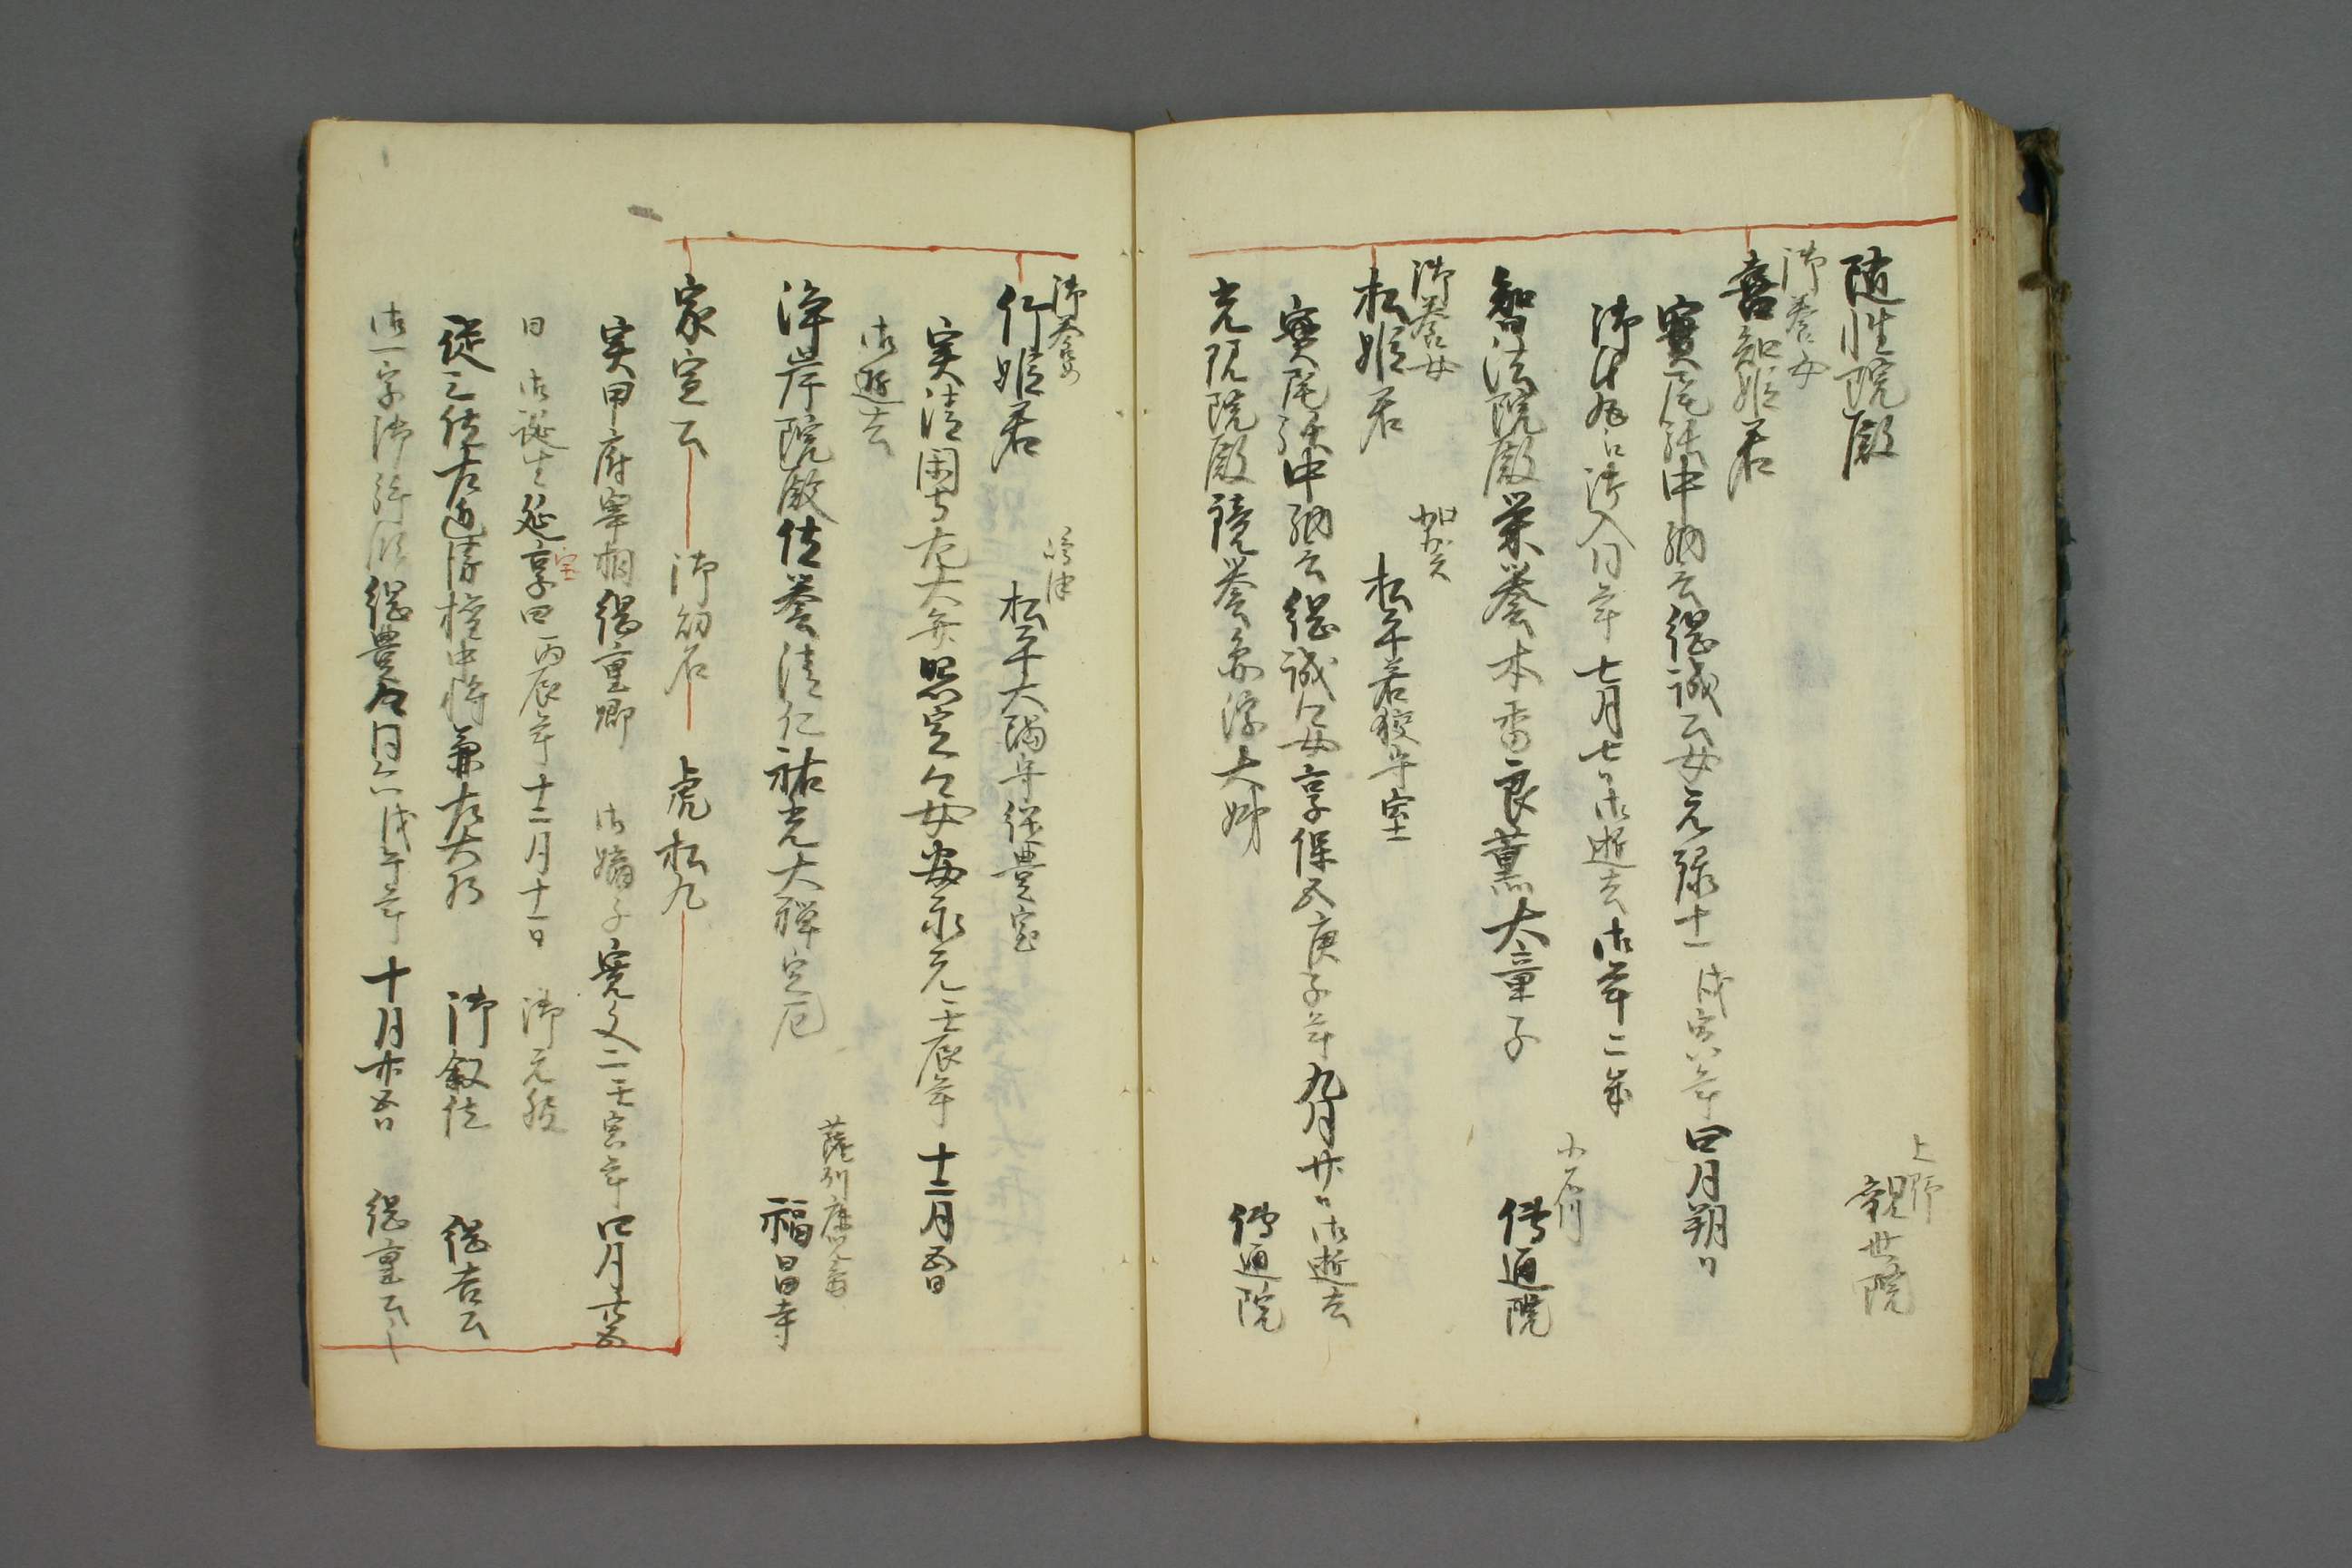 随性院殿
上野
観世院
御養女
喜知姫君
實尾張中納言綱誠公女元禄十一戊寅年四月朔日
御入同年七月七日御逝去御年二歳
智法院殿栄誉本香良薫大童子
小石川
傳通院
御養女
松姫君
加賀
松平若狭守室
實尾張中納言綱誠公女享保五庚子年九月廿日御逝去
光現院殿鏡誉
大姉
傳通院
御養女
竹姫君
松平大隅守継豊室
実清閑寺大納言熈定公女安永元壬辰年十二月五日
御逝去
浄岸院殿信誉清仁祐光大禅定尼
薩州鹿児島
福昌寺
家宣公
御幼名
虎松丸
実甲府宰相綱重卿
御嫡子寛文二壬寅年四月廿五
日御誕生延享四丙辰年十二月十一日御元服
宝
従三位左近衛権中将兼左大将
御叙位
綱吉公
御一字御拝領綱豊ト
同六戊午年十月廿五日
綱重公